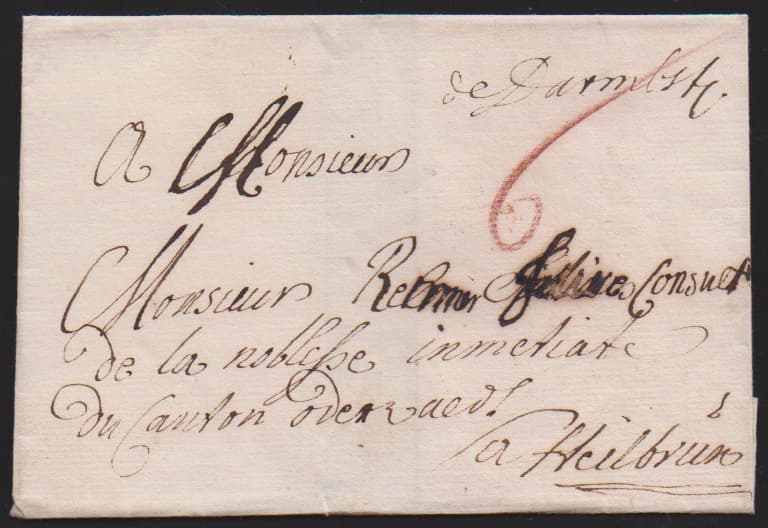 de Darmst.
6
A Monsieur
Monsieur Consult
de la noblesse inmetiate
du Canton odenwed
a Heilbrun